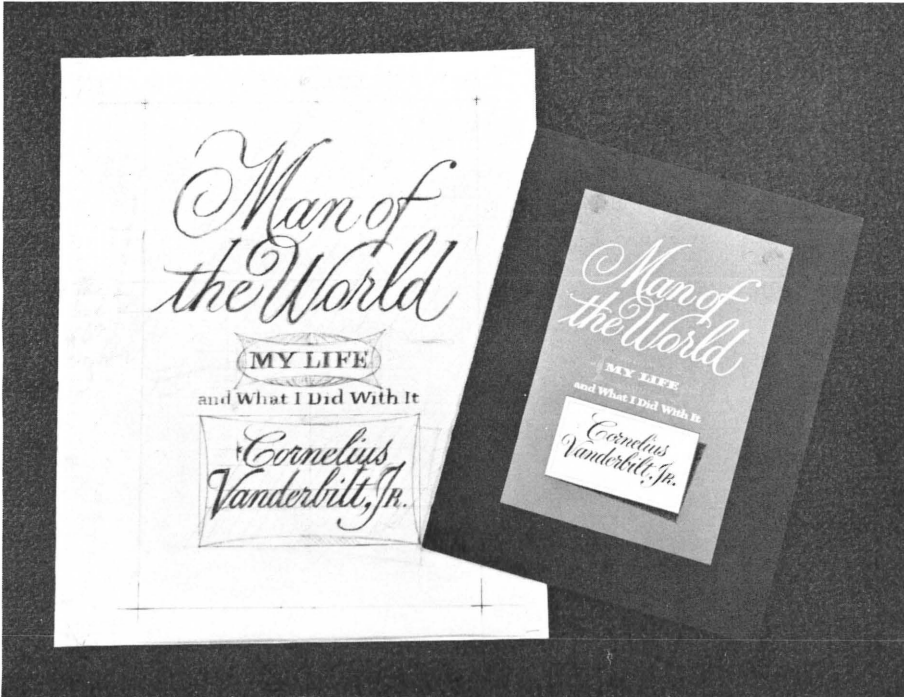 Man of
the World
MY LIFE
and What I Did With It
Cornelius
Vanderbilt, Jr.
Man of
the World
MY LIFE
and What I Did With It
Cornelius
Vanderbilt, Jr.